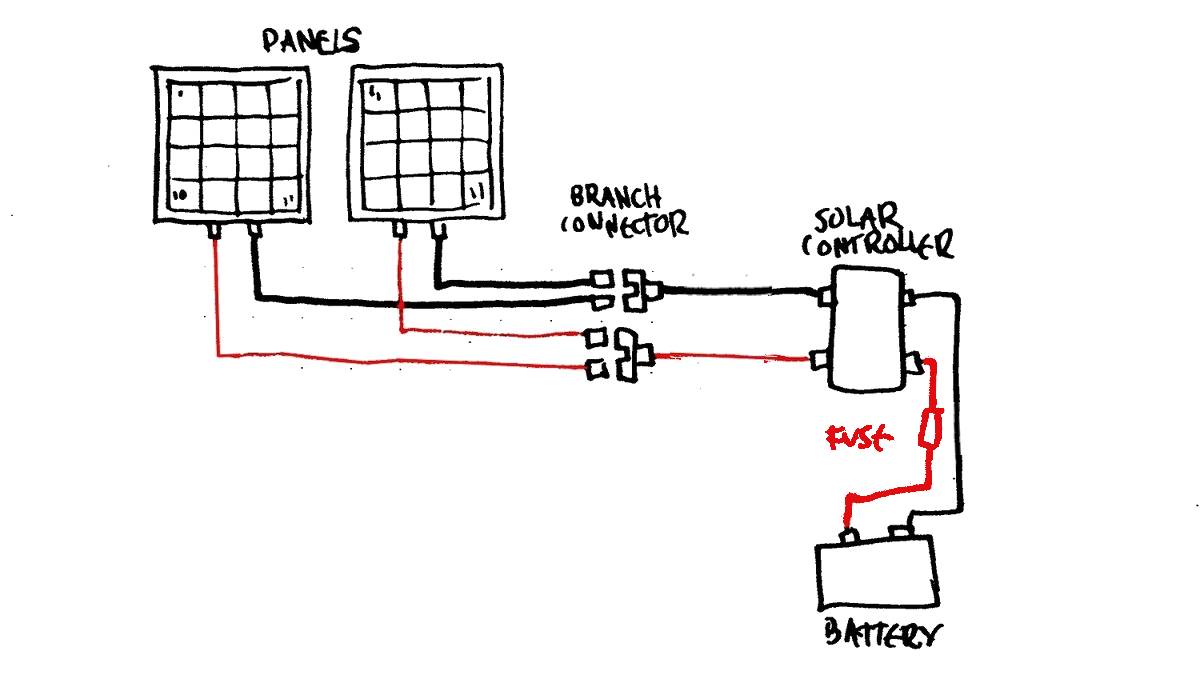 PANELS
BRANCH
CONNECTOR
SOLAR
CONTROLLER
FUSE
BATTERY